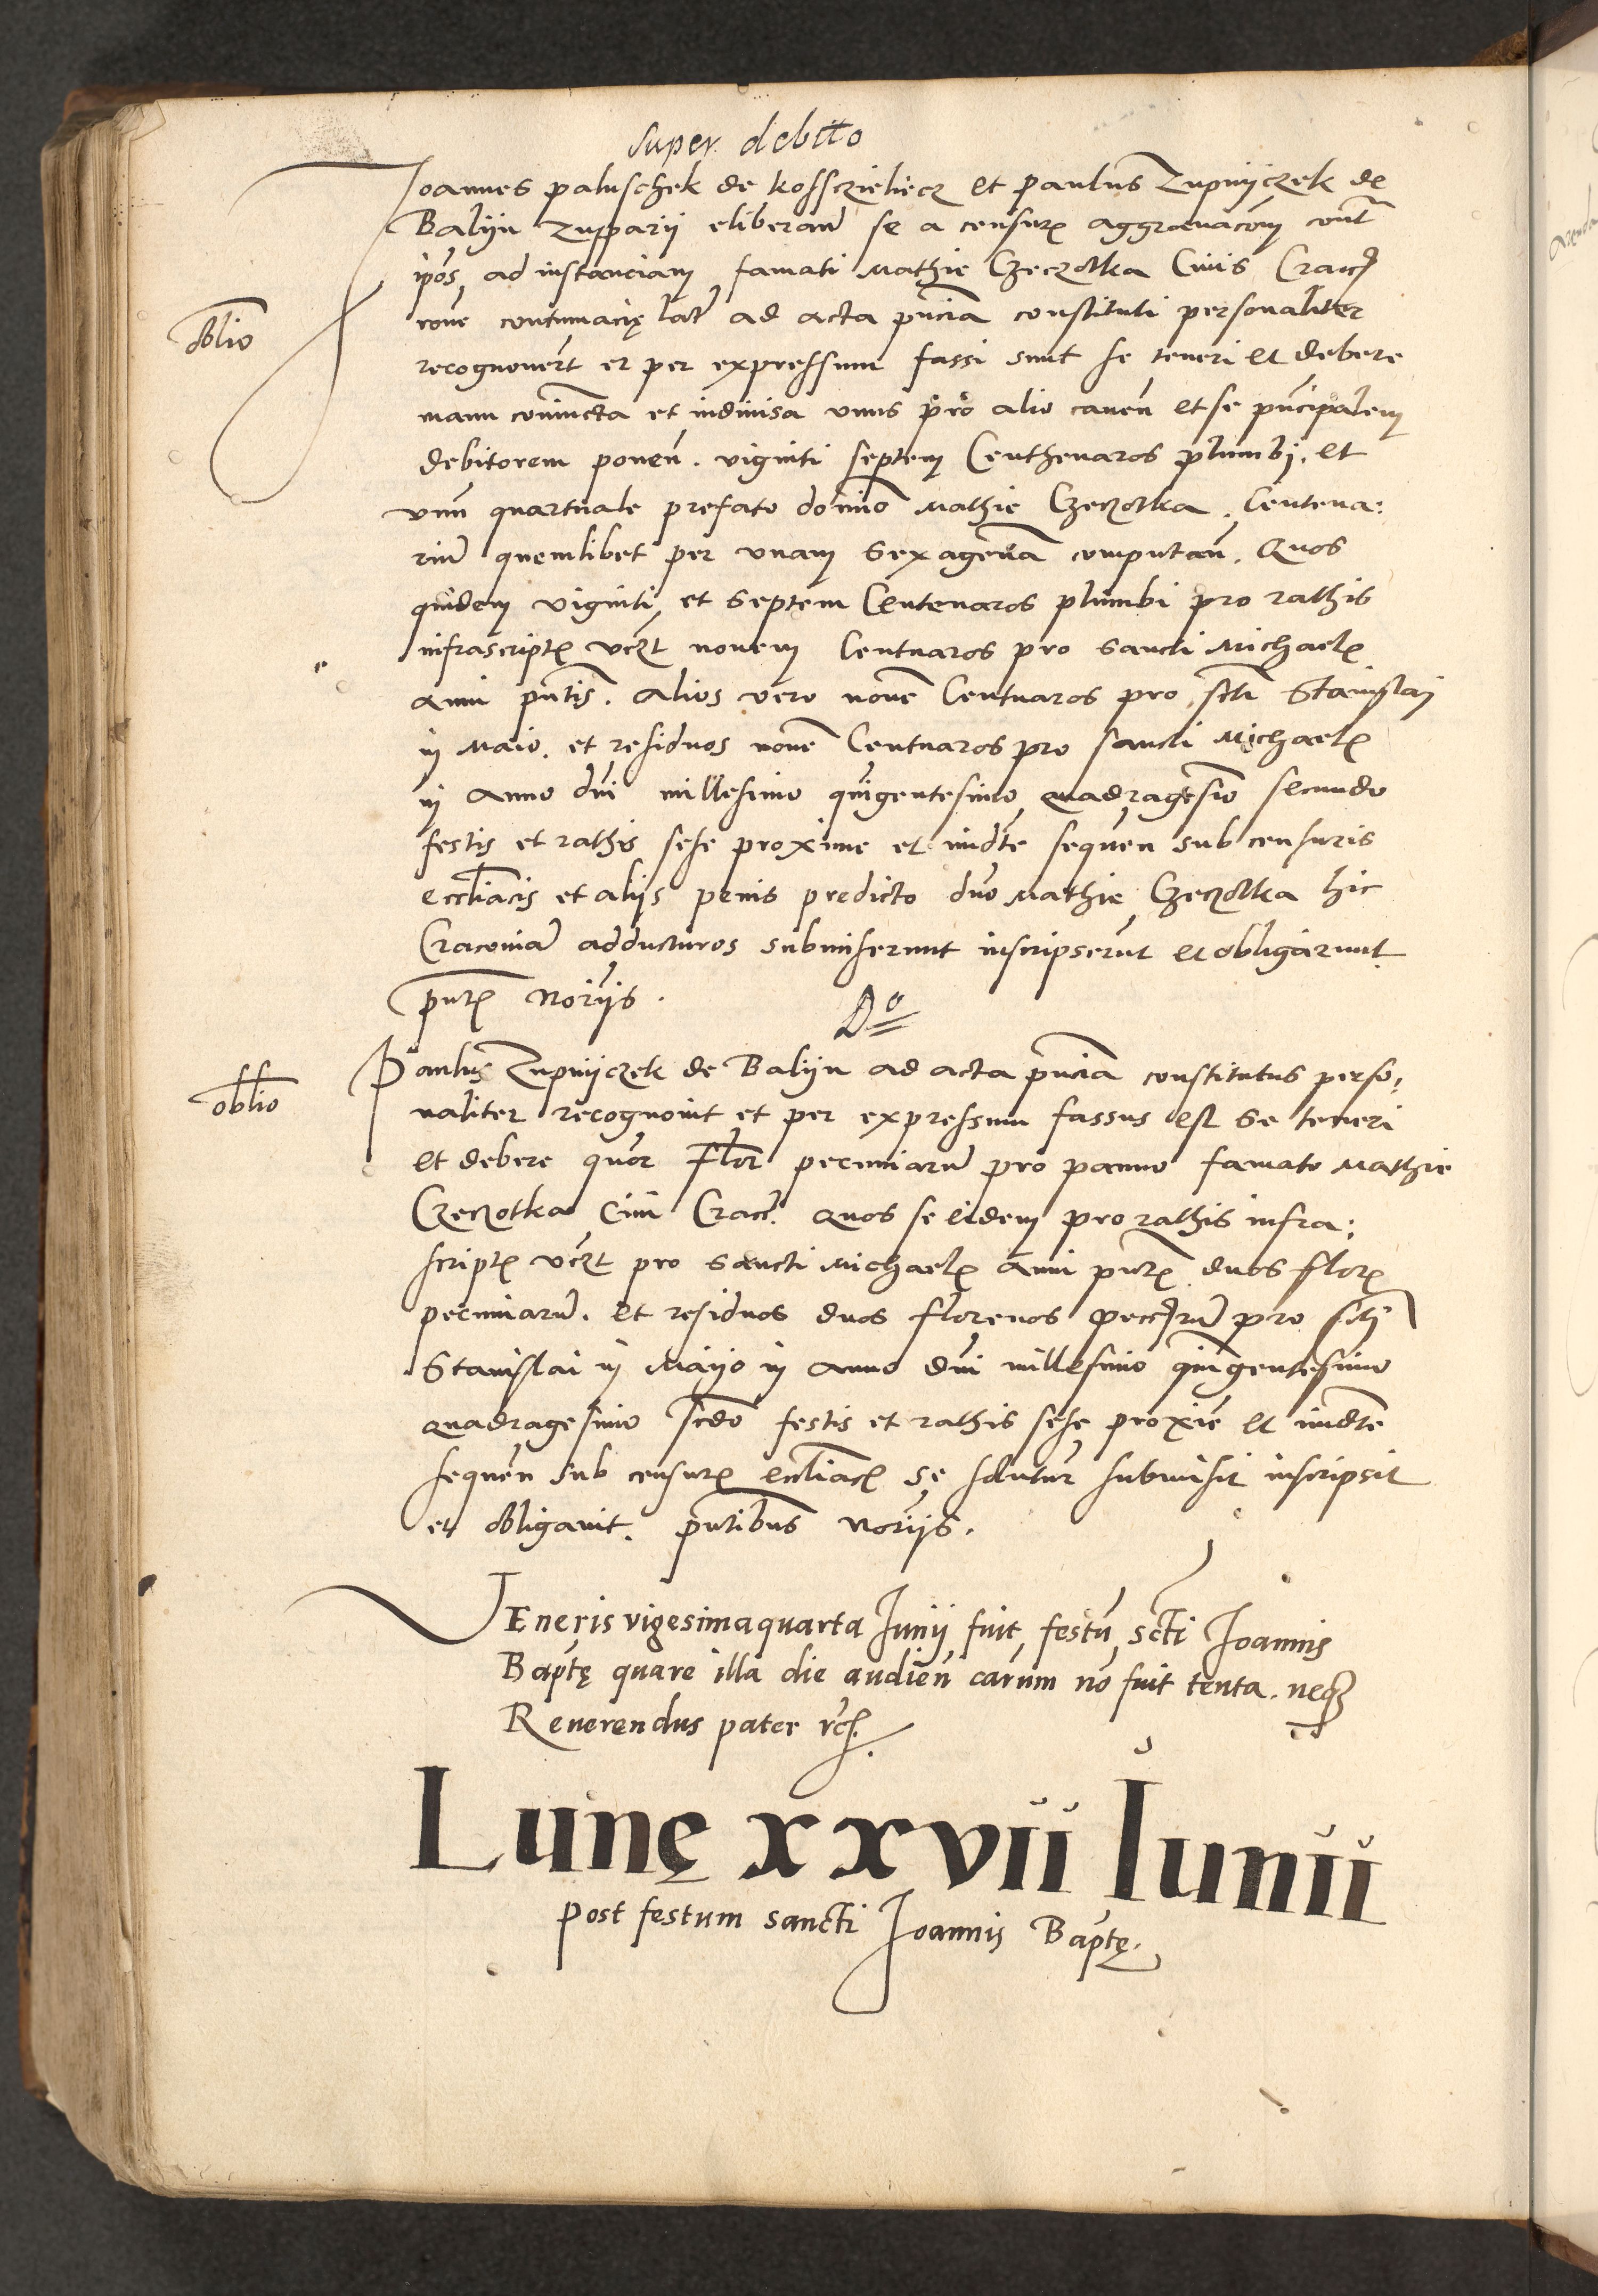 super debito
Joannes paluschek de kossczieliecz et paulus Zupnyczek de
Balyn zupparij eliberan̄ se a censuris aggrauacom̄ contr̄
ip̄os ad instanciam famati Mathie Czeczotka Ciuis Crac̄
oblio
rōne contumacię lat̄ ad acta pn̄cia constituti personaliter
recognouer̄t et per expressum fassi sunt se teneri et debere
manu coniuncta et indiuisa vnus pro alio cauen̄ et se pn̄cipalem
debitorem ponen̄. viginti septem Centhenaros plumbi. et
vnū quartuale prefato domino Mathie Czeczotka. Centena:
riū quemlibet per vnam sexagenā computan̄. Quos
quidem viginti et septem Centenaros plumbi pro rathis
infrascriptis vczt nouem Centnaros pro sancti Michaelis
anni pn̄tis. alios vero nouē Centnaros pro scti Stanislai
in Maio. et residuos nouē Centnaros pro sancti Michaelis
in anno dn̄i millesimo quīgentesimo quadragesīo secundo
festis et rathis sese proxime et imdte sequen̄ sub censuris
eccliacis et alijs penis predicto dn̄o Mathie Czeczotka hic
Cracouiā adducturos submiserunt inscripserūt et obligarunt
pn̄tibus Norijs.
Do
oblio
Paulus Zupnyczek de Balyn ad acta pn̄cia constitutus perso,
naliter recognouit et per expressum fassus est se teneri
et debere quor̄ Flor̄ pecuniarū pro panno famato Mathie
Czeczotka Ciui Crac̄. Quos se eidem pro rathis infra:
scriptis vczt pro sancti Michaelis anni pn̄tis duos floris
pecuniarū. et residuos duos florenos pecc̄rū pro scti
Stanislai in Mayo in anno dn̄i millesimo quīgentesimo
quadragesimo scdo festis et rathis sese proxīe et imdte
sequen̄ sub censuris eccliacis se solutur̄ submisit inscripsit
et obligauit. pn̄tibus Norijs.
VEneris vigesimaquarta Junij fuit festū scti Joannis
Baptę quare illa die audien̄ carum nō fuit tenta. neq3
Reuerendus pater
Lunę xxvii Iunii
post festum sancti Joannis Baptę.